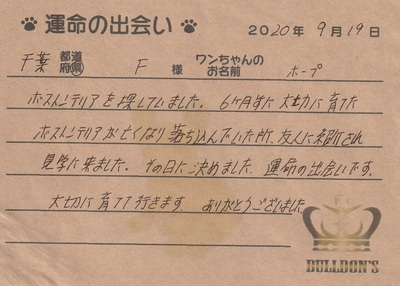 運命の出会い 2020年 9月19日
千葉 都道府県 F 様 ワンちゃんのお名前 ホープ
ボストンテリアを探していました。6ヶ月前に大切に育てた
ボストンテリアが亡くなり落ち込んでいた所、友人に紹介され
見学に来ました。その日に決めました。運命の出会いです。
大切に育てて行きます ありがとうございました
BULLDON'S